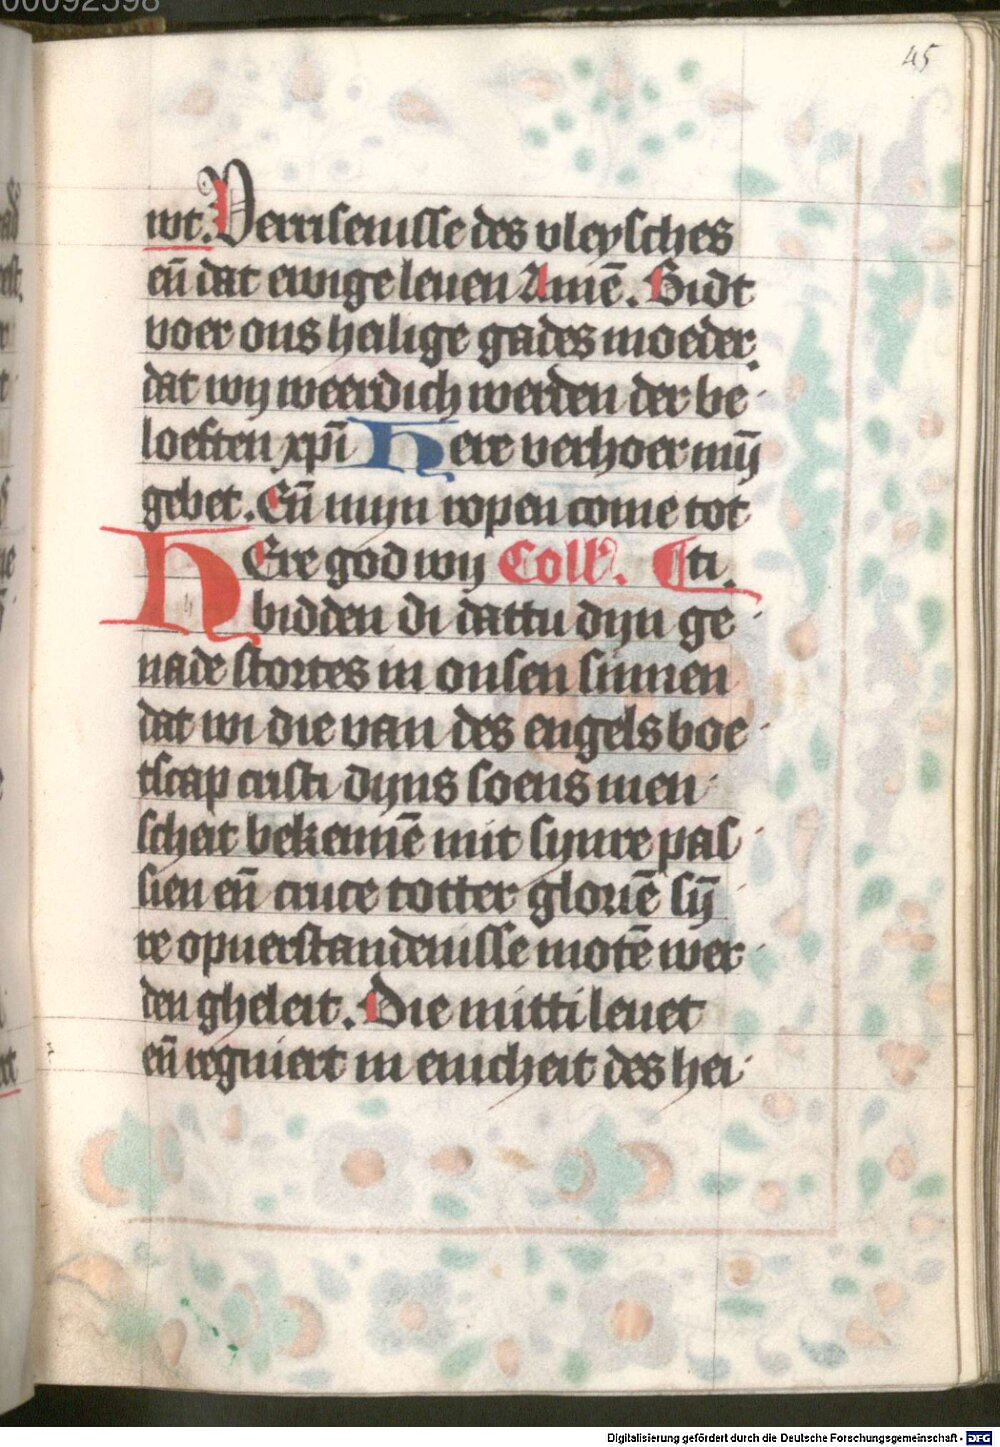 00092598
45
wt. Verrisenisse des vleysches
en̄ dat ewige leuen Amē. Bidt
voer ons heilige gades moeder.
dat wij weerdich werden der be
loeften xpī Here verhoer mȳ
gebet. En̄ mijn ropen come tot
HEre god wij Coll'. ti.
bidden di dattu dijn ge
nade stortes in onsen sinnen
dat wi die van des engels boe
tscap cristi dijns soens men
scheit bekennē mit synre pas
sien en̄ cruce totter gloriē sȳ
re opuerstandenisse motē wer
den gheleit. Die mitti leuet
en̄ regniert in enicheit des hei
Digitalisierung gefördert durch die Deutsche Forschungsgemeinschaft - DFG